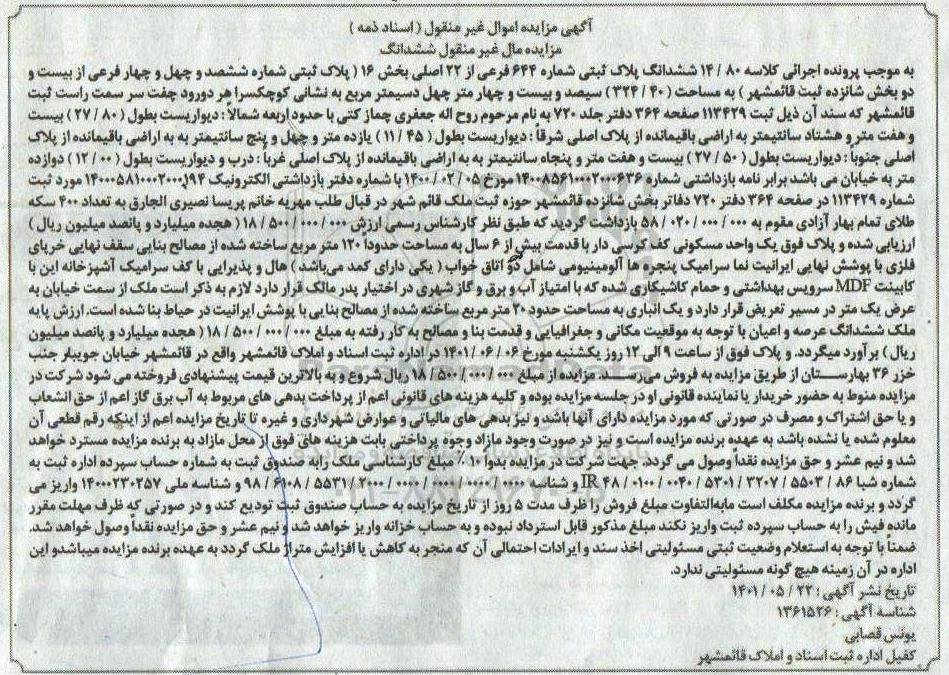 آگهی مزایده اموال غیر منقول (اسناد ذمه)
مزایده مال غیر منقول ششدانگ
به موجب پرونده اجرائی کلاسه ۸۰ / ۱۴ ششدانگ پلاک ثبتی شماره ۶۴۴ فرعی از ۲۲ اصلی بخش ۱۶ ( پلاک ثبتی شماره ششصد و چهل و چهار فرعی از بیست و
دو بخش شانزده ثبت قائمشهر ) به مساحت ( ۴۰ / ۳۲۴ ) سیصد و بیست و چهار متر چهل دسیمتر مربع به نشانی کوچکسرا هر دورود جفت سر سمت راست ثبت
قائمشهر که سند آن ذیل ثبت ۱۱۳۴۲۹ صفحه ۳۶۴ دفتر جلد ۷۲۰ به نام مرحوم روح اله جعفری چماز کتی با حدود اربعه شمالاً : دیواریست بطول ( ۸۰ / ۲۷ ) بیست
و هفت متر و هشتاد سانتیمتر به اراضی باقیمانده از پلاک اصلی شرقاً : دیواریست بطول ( ۴۵ / ۱۱ ) یازده متر و چهل و پنج سانتیمتر به به اراضی باقیمانده از پلاک
اصلی جنوباً : دیواریست بطول ( ۵۰ / ۲۷ ) بیست و هفت متر و پنجاه سانتیمتر به به اراضی باقیمانده از پلاک اصلی غرباً : درب و دیواریست بطول ( ۰۰ / ۱۲ ) دوازده
متر به خیابان می باشد برابر نامه بازداشتی شماره ۱۴۰۰۸۵۶۱۰۰۰۲۰۰۶۳۶ مورخ ۰۵ / ۰۲ / ۱۴۰۰ با شماره دفتر بازداشتی الکترونیک ۱۴۰۰۰۵۸۱۰۰۰۲۰۰۰۱۹۴ مورد ثبت
شماره ۱۱۳۴۲۹ در صفحه ۳۶۴ دفتر ۷۲۰ دفاتر بخش شانزده قائمشهر حوزه ثبت ملک قائم شهر در قبال طلب مهریه خانم پریسا نصیری الجارق به تعداد ۴۰۰ سکه
طلای تمام بهار آزادی مقوم به ۰۰۰ / ۰۰۰ / ۰۲۰ / ۵۸ بازداشت گردید که طبق نظر کارشناس رسمی ارزش ۰۰۰ / ۰۰۰ / ۵۰۰ / ۱۸ ( هجده میلیارد و پانصد میلیون ریال )
ارزیابی شده و پلاک فوق یک واحد مسکونی کف کرسی دار با قدمت بیش از ۶ سال به مساحت حدوداً ۱۲۰ متر مربع ساخته شده از مصالح بنایی سقف نهایی خرپای
فلزی با پوشش نهایی ایرانیت نما سرامیک پنجره ها آلومینیومی شامل دو اتاق خواب ( یکی دارای کمد می‌باشد ) هال و پذیرایی با کف سرامیک آشپزخانه این با
کابینت MDF سرویس بهداشتی و حمام کاشیکاری شده که با امتیاز آب و برق و گاز شهری در اختیار پدر مالک قرار دارد لازم به ذکر است ملک از سمت خیابان به
عرض یک متر در مسیر تعریض قرار دارد و یک انباری به مساحت حدود ۲۰ متر مربع ساخته شده از مصالح بنایی با پوشش ایرانیت در حیاط بنا شده است. ارزش پایه
ملک ششدانگ عرصه و اعیان با توجه به موقعیت مکانی و جغرافیایی و قدمت بنا و مصالح به کار رفته به مبلغ ۰۰۰ / ۰۰۰ / ۵۰۰ / ۱۸ ( هجده میلیارد و پانصد میلیون
ریال ) برآورد میگردد. و پلاک فوق از ساعت ۹ الی ۱۲ روز یکشنبه مورخ ۰۶ / ۰۶ / ۱۴۰۱ در اداره ثبت اسناد و املاک قائمشهر واقع در قائمشهر خیابان جویبار جنب
خزر ۳۶ بهارستان از طریق مزایده به فروش می‌رسد. مزایده از مبلغ ۰۰۰ / ۰۰۰ / ۵۰۰ / ۱۸ ریال شروع و به بالاترین قیمت پیشنهادی فروخته می شود شرکت در
مزایده منوط به حضور خریدار یا نماینده قانونی او در جلسه مزایده بوده و کلیه هزینه های قانونی اعم از پرداخت بدهی های مربوط به آب برق گاز اعم از حق انشعاب
و یا حق اشتراک و مصرف در صورتی که مورد مزایده دارای آنها باشد و نیز بدهی های مالیاتی و عوارض شهرداری و غیره تا تاریخ مزایده اعم از اینکه رقم قطعی آن
معلوم شده یا نشده باشد به عهده برنده مزایده است و نیز در صورت وجود مازاد وجوه پرداختی بابت هزینه های فوق از محل مازاد به برنده مزایده مسترد خواهد
شد و نیم عشر و حق مزایده نقداً وصول می گردد. جهت شرکت در مزایده بدوا ۱۰٪ مبلغ کارشناسی ملک را به صندوق ثبت به شماره حساب سپرده اداره ثبت به
شماره شبا ۸۶ / ۵۵۰۳ / ۳۲۰۷ / ۵۳۰۱ / ۰۰۴۰ / ۰۱۰۰ / ۴۸ IR و شناسه ۰۰۰۰ / ۰۰۰۰ / ۰۰۰۰ / ۲۰۰۰ / ۵۵۳۱ / ۶۱۰۸ / ۹۸ و شناسه ملی ۱۴۰۰۰۲۳۰۲۵۷ واریز می
گردد و برنده مزایده مکلف است مابه‌التفاوت مبلغ فروش را ظرف مدت ۵ روز از تاریخ مزایده به حساب صندوق ثبت تودیع کند و در صورتی که ظرف مهلت مقرر
مانده فیش را به حساب سپرده ثبت واریز نکند مبلغ مذکور قابل استرداد نبوده و به حساب خزانه واریز خواهد شد و نیم عشر و حق مزایده نقداً وصول خواهد شد.
ضمناً با توجه به استعلام وضعیت ثبتی مسئولیتی اخذ سند و ایرادات احتمالی آن که منجر به کاهش یا افزایش متراژ ملک گردد به عهده برنده مزایده میباشدو این
اداره در آن زمینه هیچ گونه مسئولیتی ندارد.
تاریخ نشر آگهی : ۲۳ / ۰۵ / ۱۴۰۱
شناسه آگهی : ۱۳۶۱۵۲۶
یونس قصابی
کفیل اداره ثبت اسناد و املاک قائمشهر